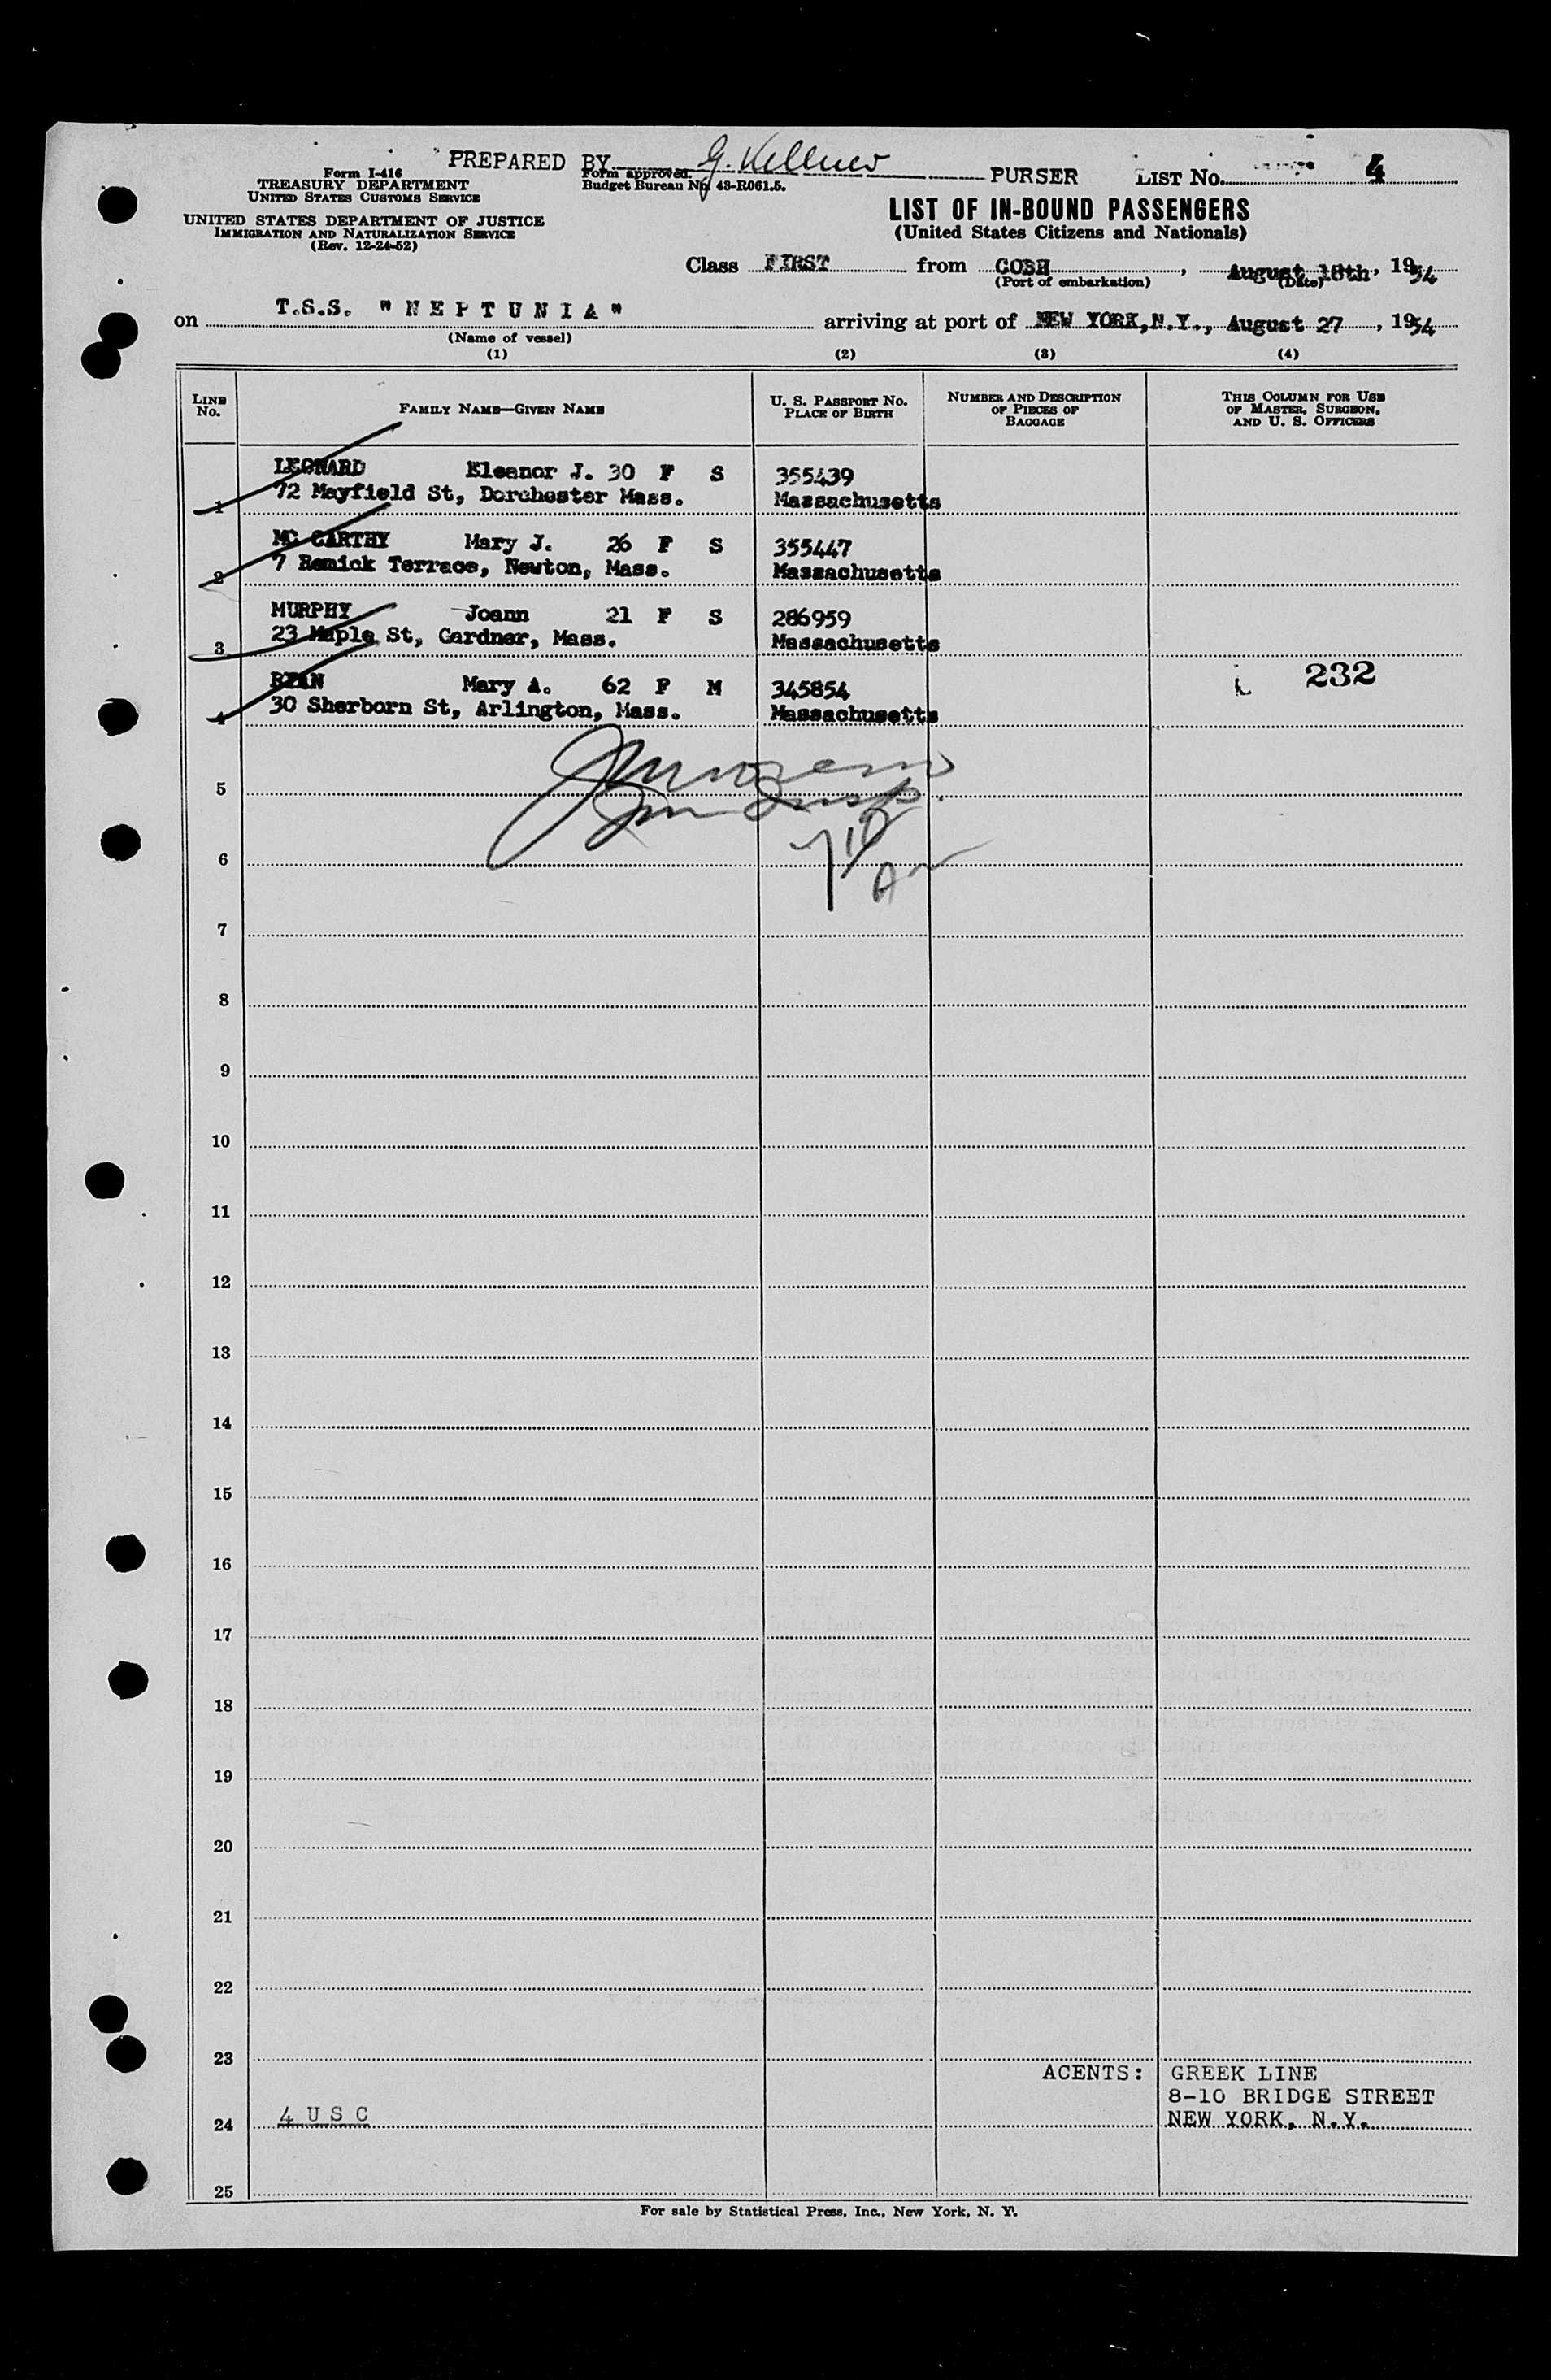 PREPARED BY G. Kellner PURSER LIST NO. 4
Form I-416
TREASURY DEPARTMENT
UNITED STATES CUSTOMS SERVICE
Form approved.
Budget Bureau No. 43-R061.5.
UNITED STATES DEPARTMENT OF JUSTICE
IMMIGRATION AND NATURALIZATION SERVICE
(Rev. 12-24-52)
LIST OF IN-BOUND PASSENGERS
(United States Citizens and Nationals)
Class FIRST from COBH, August 18th, 1954
(Port of embarkation) (Date)
on T.S.S. "NEPTUNIA" arriving at port of NEW YORK, N.Y., August 27, 1954
(Name of vessel)
(1) (2) (3) (4)
LINE No. FAMILY NAME—GIVEN NAME U. S. PASSPORT NO. PLACE OF BIRTH NUMBER AND DESCRIPTION OF PIECES OF BAGGAGE THIS COLUMN FOR USE OF MASTER, SURGEON, AND U. S. OFFICERS
LEONARD Eleanor J. 30 F S 355439
1 72 Mayfield St, Dorchester Mass. Massachusetts
MC CARTHY Mary J. 26 F S 355447
2 7 Remick Terrace, Newton, Mass. Massachusetts
MURPHY Joann 21 F S 286959
3 23 Maple St, Gardner, Mass. Massachusetts
RYAN Mary A. 62 F M 345854 232
4 30 Sherborn St, Arlington, Mass. Massachusetts
5
6
7
8
9
10
11
12
13
14
15
16
17
18
19
20
21
22
23
ACENTS: GREEK LINE
8-10 BRIDGE STREET
24 4 U S C NEW YORK, N.Y.
25
For sale by Statistical Press, Inc., New York, N. Y.